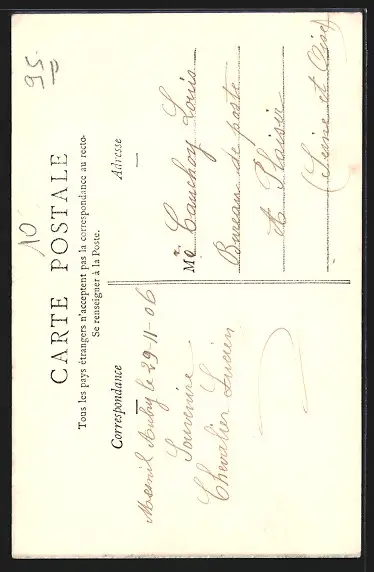 95.
10
CARTE POSTALE
Tous les pays étrangers n'acceptent pas la correspondance au recto-
Se renseigner à la Poste.
Correspondance
Adresse
Mesnil Aubry le 29-11-06
Souvenire
Chevalier Lucien
Mr Cauchoy Louis
Bureau de poste
A Plaisir
(Seine et Oise)